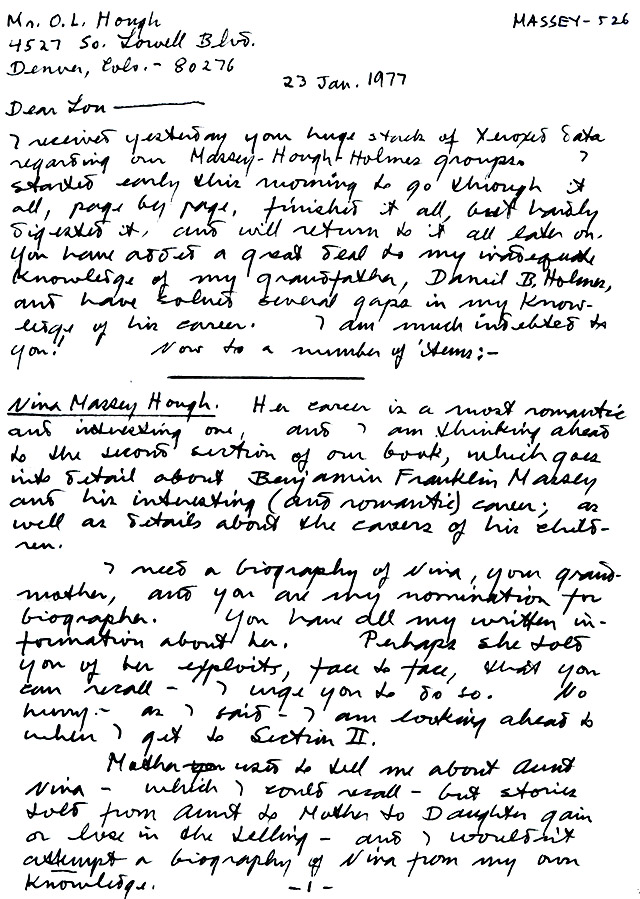 Mr. O.L. Hough
MASSEY-526
4527 So. Lowell Blvd.
Denver, Colo. - 80276
23 Jan. 1977
Dear Lou
I received yesterday your huge stack of Xeroxed data
regarding our Massey-Hough-Holmes groups. I
started early this morning to go through it
all, page by page, finished it all, but hardly
digested it, and will return to it all later on.
You have added a great deal to my inadequate
knowledge of my grandfather, Daniel B. Holmes,
and have solved several gaps in my know-
ledge of his career. I am much indebted to
you! Now to a number of items:-
Nina Massey Hough. Her career is a most romantic
and interesting one, and I am thinking ahead
to the second section of our book, which goes
into detail about Benjamin Franklin Massey
and his interesting (and romantic) career; as
well as details about the careers of his child-
ren.
I need a biography of Nina, your grand-
mother, and you are my nomination for
biographer. You have all my written in-
formation about her. Perhaps she told
you of her exploits, face to face, that you
can recall - I urge you to do so. No
hurry - as I said - I am looking ahead to
when I get to Section II.
Mother used to tell me about Aunt
Nina - which I could recall - but stories
told from Aunt to Mother to Daughter gain
or lose in the telling - and I wouldn't
attempt a biography of Nina from my own
knowledge.
-1-